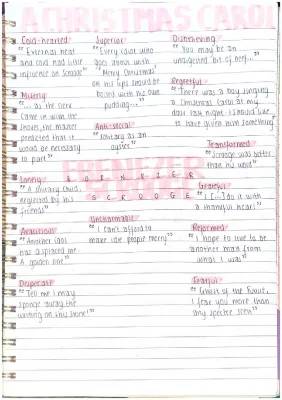 A CHRISTMAS CAROL
Cold-hearted
"External heat
and cold had little
influence on Scrooge"
Superior
"Every idiot who
goes about with
'Merry Christmas'
on his lips should be
boiled with his own
pudding..."
Disbelieving
"You may be an
undigested bit of beef..."
Regretful
"There was a boy singing
a Christmas Carol at my
door last night. I should like
to have given him something"
Miserly
"... as the clerk
came in with the
shovel, the master
predicted that it
would be necessary
to part"
Anti-social
"solitary as an
oyster"
Transformed
"Scrooge was better
than his word"
EBENEZER
SCROOGE
Lonely
"a solitary child,
neglected by his
friends"
Grateful
"I [...] do it with
a thankful heart"
Uncharitable
"I can't afford to
make idle people merry"
Avaricious
"Another idol
has displaced me...
a golden one"
Reformed
"I hope to live to be
another man from
what I was"
Desperate
"Tell me I may
sponge away the
writing on this stone!"
Fearful
"Ghost of the Future,
I fear you more than
any spectre seen"